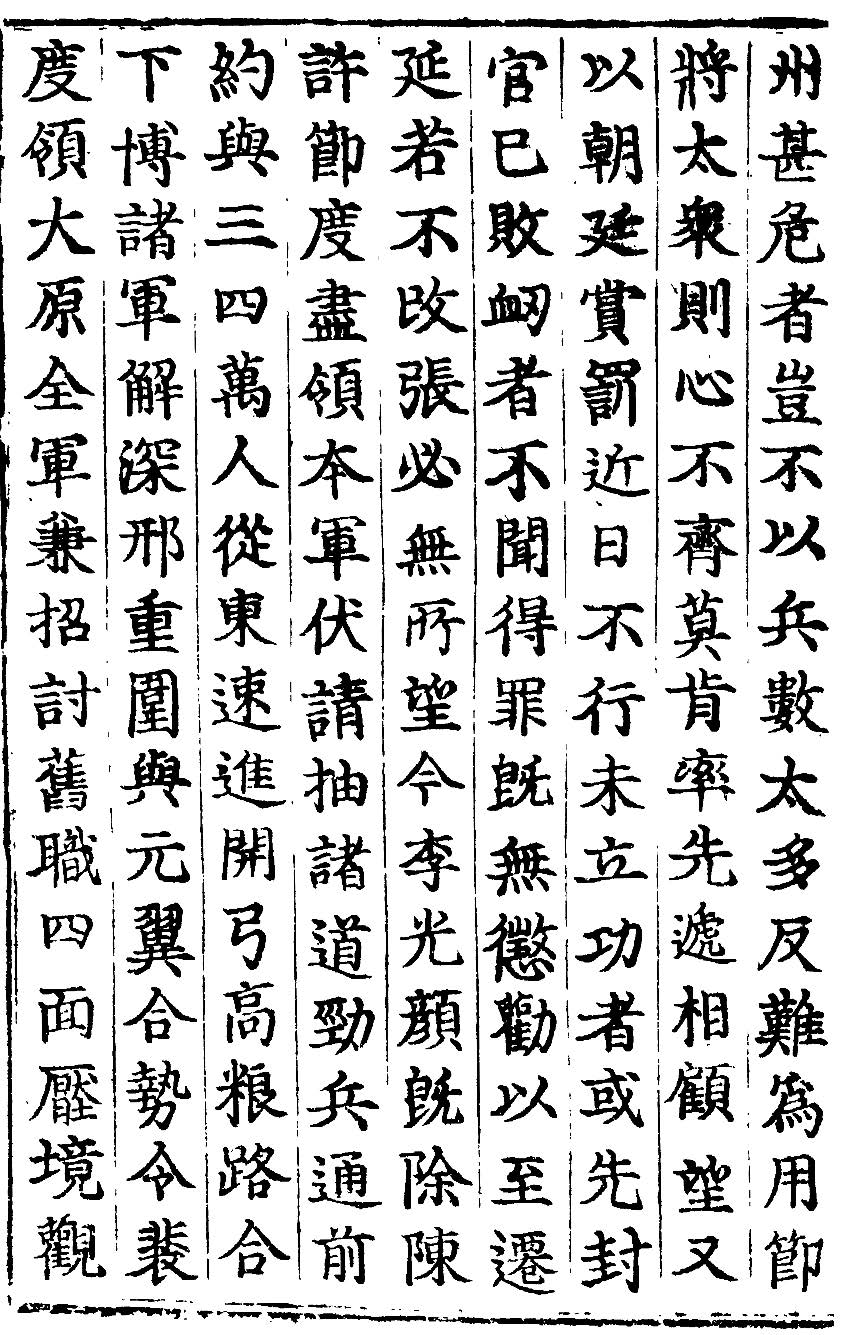 州甚危者豈不以兵數太多反難爲用節
將太衆則心不齊莫肯率先遞相顧望又
以朝廷賞罰近日不行未立功者或先封
官已敗衂者不聞得罪旣無懲勸以至遷
延若不改張必無所望今李光顔旣除陳
許節度盡領本軍伏請抽諸道勁兵通前
約與三四萬人從東速進開弓高粮路合
下博諸軍解深邢重圍與元翼合勢令裴
度領大原全軍兼招討舊職四面壓境觀